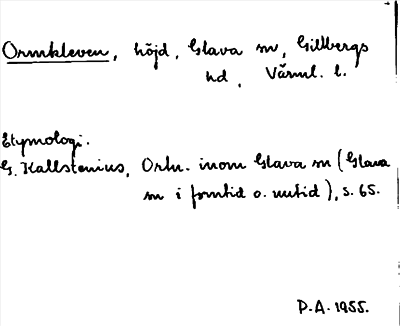 Ormkleven, höjd, Glava sn, Gillbergs
hd, Värml. l.
Etymologi.
G. Kallstenius, Ortn. inom Glava sn (Glava
sn i forntid o. nutid), s. 65.
P.A. 1955.